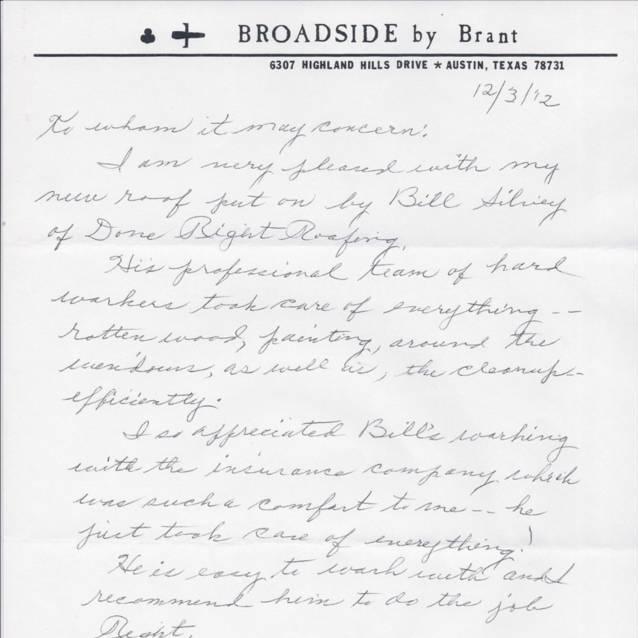 BROADSIDE by Brant
6307 HIGHLAND HILLS DRIVE ★ AUSTIN, TEXAS 78731
12/3/'12
To whom it may concern:
I am very pleased with my
new roof put on by Bill Silvey
of Done Right Roofing.
His professional team of hard
workers took care of everything --
rotten wood, painting, around the
windows, as well as, the cleanup -
efficiently.
I so appreciated Bill's working
with the insurance company which
was such a comfort to me -- he
just took care of everything!
He is easy to work with and I
recommend him to do the job
Right.